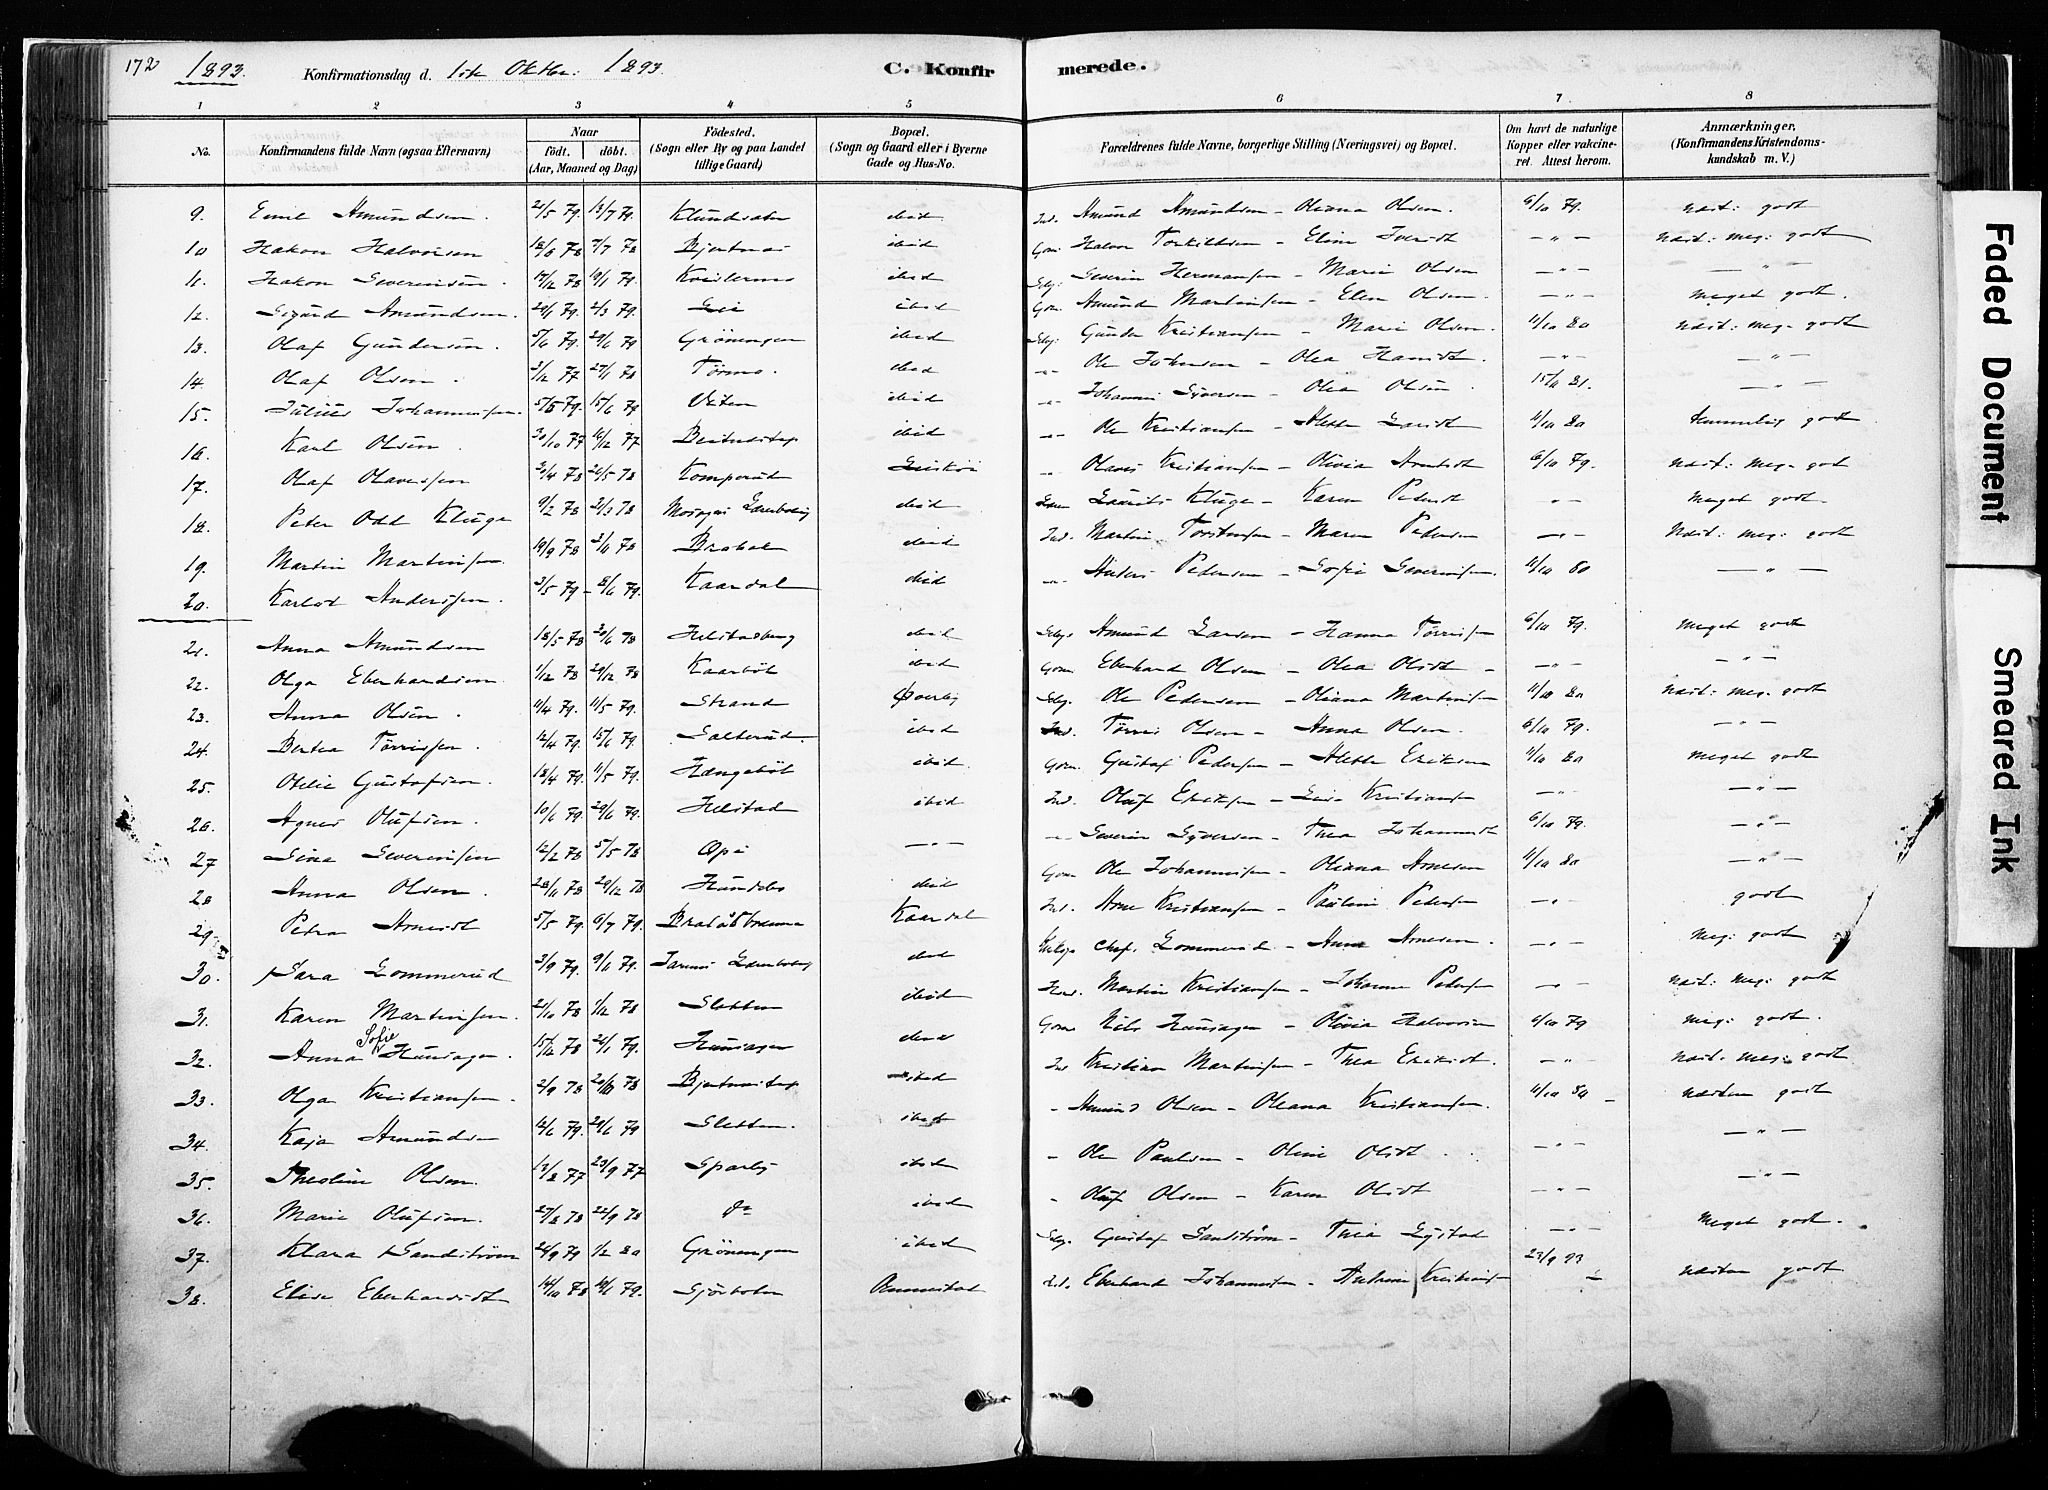 172 1893. Konfirmationsdag d. 1ste Oktbr: 1893. C. Konfirmerede.
1 2 3 4 5 6 7. 8
No. Konfirmandens fulde Navn (ogsaa Efternavn) Naar födt. döbt. (Aar, Maaned og Dag) Födested. (Sogn eller By og paa Landet tillige Gaard) Bopæl. (Sogn og Gaard eller i Byerne Gade og Hus-No. Forældrenes fulde Navne, borgerlige Stilling (Næringsvei) og Bopæl. Om havt de naturlige Kopper eller vakcineret. Attest herom. Anmærkninger. (Konfirmandens Kristendomskundskab m. V.)
9. Emil Amundsen. 21/5 79. 13/7 79. ibid Ind. Amund Amundsen - Oliana Olsen. 6/10 79. næst: godt
10 Hakon Halvorsen 7/7 78 ibid Gm. Halvor Torkildsen - Eline Iversdt — " — næst: meg: godt
11. Hakon Severinsen. 17/12 78 19/1 79. ibid Selvej: Severin Hermansen - Marie Olsen — " — — " —
12. Sigurd Amundsen. 2/3 79. ibid Gm. Amund Martinsen - Elen Olsen. — " — meget godt.
13. Olaf Gundersen. 5/6 79. 29/6 79 Gröningen ibid Selvej: Gunder Kristiansen - Marie Olsen. 11/10 80 Næst: meg: godt
14. Olaf Olsen. 27/1 78 Törmo. ibid " Ole Johnsen - Olea Hansdt. — " — — " —
15. Julius Johannessen. 5/5 79. 15/6 79 Viten ibid " Johannes Syversen - Olea Olsen. 15/11 81. — " —
16. Karl Olsen. 30/10 77 16/12 77 ibid " Ole Kristiansen - Alette Larsdt 11/10 80 temmelig godt
17. Olaf Olavessen 26/5 78 Komperud " Olaves Kristiansen - Olivia Arnesdt 6/10 79. Næst: meg: got
18. Peter Odd Kluge 9/2 78 21/3 78 ibid Laurits Kluge - Karen Pedersdt " meget godt.
19. Martin Martinsen. 19/9 78 ibid Ind. Martin Torstensen - Maren Pedersen — " — Næst: meg: godt
20. Karl Anderssen. 3/5 79 - 2/6 79. Kaardal ibid " Anders Pedersen - Sofie Severinsen. 11/10 80 — " —
21. Anna Amundsen 18/5 78 30/6 78 Helstadberg ibid Selvej. Amund Larsen - Hanna Törrisen 6/10 79. Meget godt
22. Olga Eberhardsen. 1/12 78 29/12 78 Kaarböl ibid Gm. Eberhard Olsen - Olea Olsdt - — " — — " —
23. Anna Olsen. 11/4 79. 11/5 79. Strand Øverby Selvej. Ole Pedersen - Oliana Martinsen 11/10 80 Næst: meg. godt
24. Bertea Törrissen. 12/4 79. 15/6 79. Sæterud. ibid Ind. Törris Olsen - Anna Olsen. 6/10 79. — " —
25. Otelie Gustafsen. 13/4 79. 11/5 79. Hængeböl ibid. Gm. Gustaf Pedersen - Alette Eriksen 11/10 80 meget godt
26. Agnes Olufsen. 10/6 79. 29/6 79. Helstad ibid Ind. Oluf Eriksen - Lise Kristiansen — " — — " —
27 Lina Severinsen 12/2 78 5/5 78 Opi — " — " Severin Syversen - Thea Johannesdt 6/10 79. — " —
28 Anna Olsen. 28/11 78 29/12 78 Hundebo ibid Gm. Ole Johannessen - Oliana Arnesen 11/10 80 — " —
29. Petra Arnesdt 5/5 79. 6/7 79. Kaardal Ind. Arne Kristiansen - Pauline Pedersen — " — godt
30. Sara Lommerud 3/9 79. 9/11 79. ibid Chr. Lommerud - Anna Arnesen. — " — Meg: godt
31. Karen Martinsen. 21/10 78 1/12 78 Sletten ibid Ind. Martin Kristiansen - Johanne Pedersen — " — næst: meg: godt
32. Anna Sofie Hunsager. 15/12 78 26/1 79. Hunsager ibid Gm. Nils Hunsager - Olivia Halvorsen 6/10 79 meg: godt.
33. Olga Kristiansen. 2/9 78 20/10 78 ibid Ind Kristian Martinsen - Thea Eriksdt. — " — Næst. meg. godt
34. Kaja Amundsen 12/6 79. 29/6 79 Sletten. ibid " Amund Olsen - Oleana Kristiansen. 11/10 80 - næsten godt
35. Theoline Olsen. 13/2 77 23/9 77 Sparby ibid " Ole Paulsen - Oline Olsdt — " — — " —
36. Marie Olufsen. 27/8 78 22/9 78 do ibid " Oluf Olsen - Karen Olsdt — " — — " —
37. Klara Sandström 24/9 79 1/2 80 Gröningen ibid Selvej. Gustaf Sandström - Thea Systad — " — Meget godt.
38. Elise Eberhardsdt 14/10 78 19/1 79. Ommestad Ind. Eberhard Johannessen - Andrine Kristiansen 23/9 93 Næsten godt
Faded Document
Smeared Ink